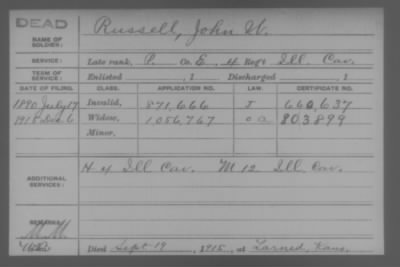 DEAD
NAME OF SOLDIER: Russell, John W.
SERVICE: Late rank, P. Co. E, 4 Regt Ill. Cav.
TERM OF SERVICE: Enlisted , 1 Discharged , 1
DATE OF FILING. CLASS. APPLICATION NO. LAW. CERTIFICATE NO.
1890 July 17 Invalid, 871,666 J 660,637
Widow, 1,056,767 803,899
Minor,
ADDITIONAL SERVICES: H 4 Ill Cav. M 12 Ill. Cav.
REMARKS:
Died Sept 19, 1915, at Larned, Kans.